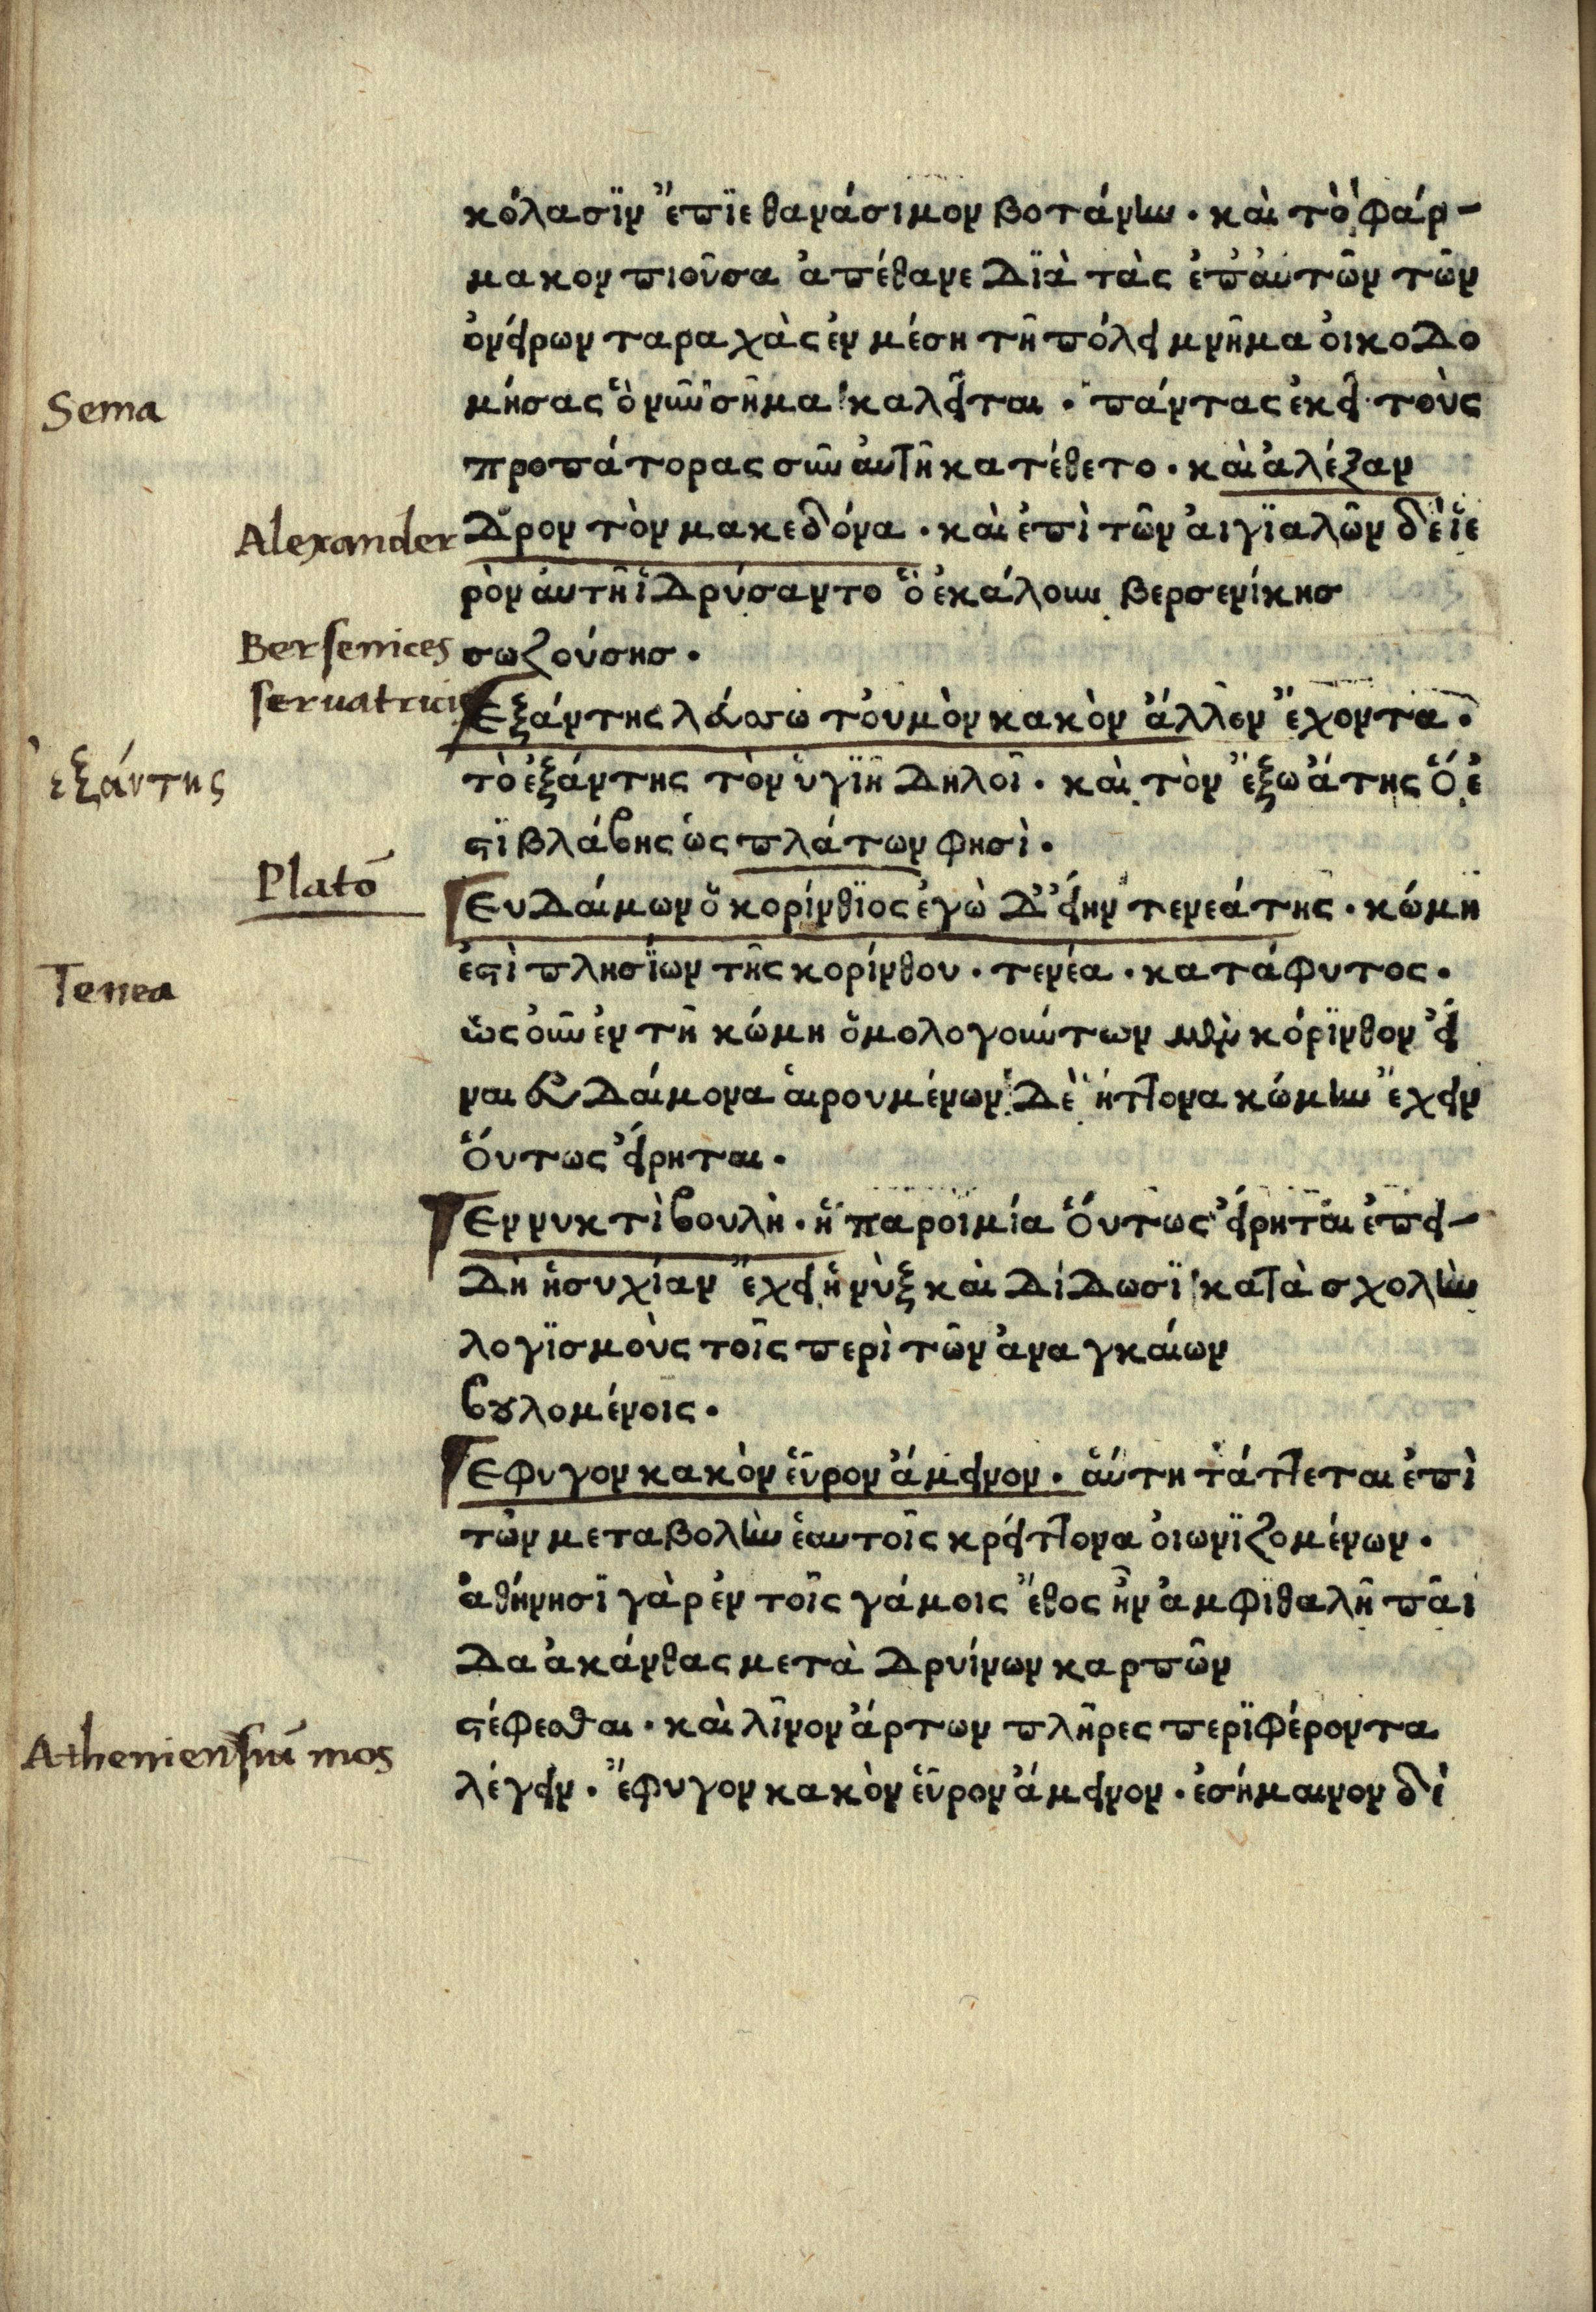 κόλασϊν ἔπϊε θανάσιμον βοτάνην · καὶ τὸ φάρ-
μακον πιοῦσα ἀπέθανε Διὰ τὰς ἐπ᾽ἀυτῶν τῶν
ὀνείρων ταραχὰς ἐν μέση τῆ πόλει μνῆμα ὀικοΔο
Sema
μήσας ὃ νῦν σῆμα καλεῖται · πάντας ἐκεῖ τοὺς
προπάτορας σὺν ἀυτῆ κατέθετο · καὶ ἀλέξαν
Alexander
Δρον τὸν μακεδόνα · καὶ ἐπὶ τῶν ἀιγϊαλῶν δὲ ἱε
ρὸν ἀυτῆ ἱΔρύσαντο ὃ ἐκάλουν βερσενίκησ
Bersenices
σωζούσησ ·
seruatricis
Εξάντης λεύσσω τὀυμὸν κακὸν ἄλλον ἔχοντα ·
ἐξάντης
τὸ ἐξάντης τὸν ὑγϊῆ Δηλοῖ · καὶ τὸν ἔξω ἄτης ὅ ἐ
ςϊ βλάβης ὡς πλάτων φησὶ ·
Plato
ΕυΔαίμων ὁ κορίνθϊος ἐγὼ Δ᾽ εἴην τενεάτης · κώμη
Tenea
ἐςὶ πλησίων τῆς κορίνθου · τενέα · κατάφυτος ·
ὡς ὀυν ἐν τῆ κώμη ὁμολογούντων μὲν κόρϊνθον εἶ
ναι ἐυΔαίμονα ἁιρουμένων Δὲ ἥττονα κώμην ἔχειν
ὅυτως εἴρηται ·
Εν νυκτὶ βουλὴ · ἡ παροιμία ὅυτως εἴρηται ἐπει-
Δὴ ἡσυχίαν ἔχει ἡ νὺξ καὶ ΔίΔωσϊ κατὰ σχολὴν
λογϊσμοὺς τοῖς περὶ τῶν ἀναγκαίων
βουλομένοις ·
Εφυγον κακὸν ἕυρον ἄμεινον · ἅυτη τάττεται ἐπὶ
τῶν μεταβολὴν ἑαυτοῖς κρείττονα ὀιωνϊζομένων ·
ἀθήνησϊ γὰρ ἐν τοῖς γάμοις ἔθος ἦν ἀμφϊθαλῆ παῖ
Δα ἀκάνθας μετὰ Δρυίνων καρπῶν
ςέφεσθαι · καὶ λῖνον ἄρτων πλῆρες περϊφέροντα
Atheniensiū mos
λέγειν · ἔφυγον κακὸν ἕυρον ἄμεινον · ἐσήμαινον δὲ